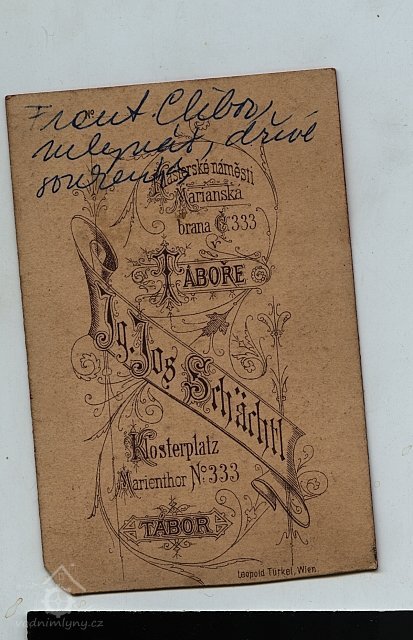 Frant. Clibor,
mlynář, dříve
Klášterské náměstí
Marianská
brana Č. 333
TÁBOŘE
Ig. Jos. Schächtl
Klosterplatz
Marienthor No. 333
TÁBOR
Leopold Türkel, Wien.
vodnimlyny.cz